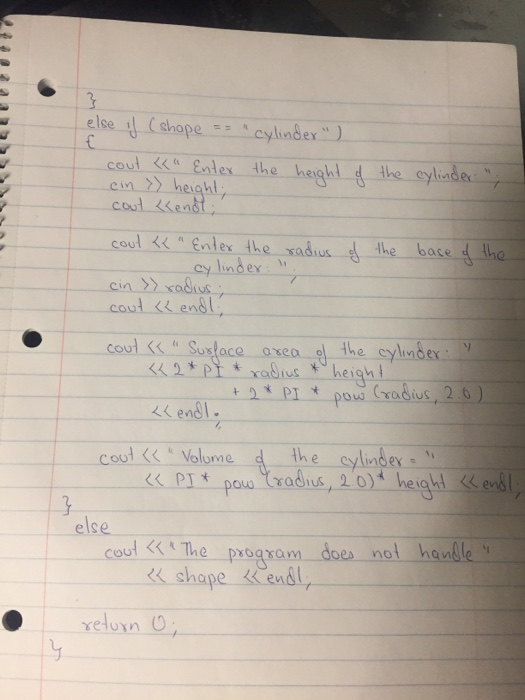 }
else if (shape == "cylinder")
{
cout << " Enter the height of the cylinder: ";
cin >> height;
cout << endl;
cout << " Enter the radius of the base of the
cylinder: ";
cin >> radius;
cout << endl;
cout << " Surface area of the cylinder: "
<< 2 * PI * radius * height
+ 2 * PI * pow (radius, 2.0)
<< endl;
cout << " Volume of the cylinder = "
<< PI * pow (radius, 2.0) * height << endl;
}
else
cout << " The program does not handle "
<< shape << endl;
return 0;
}